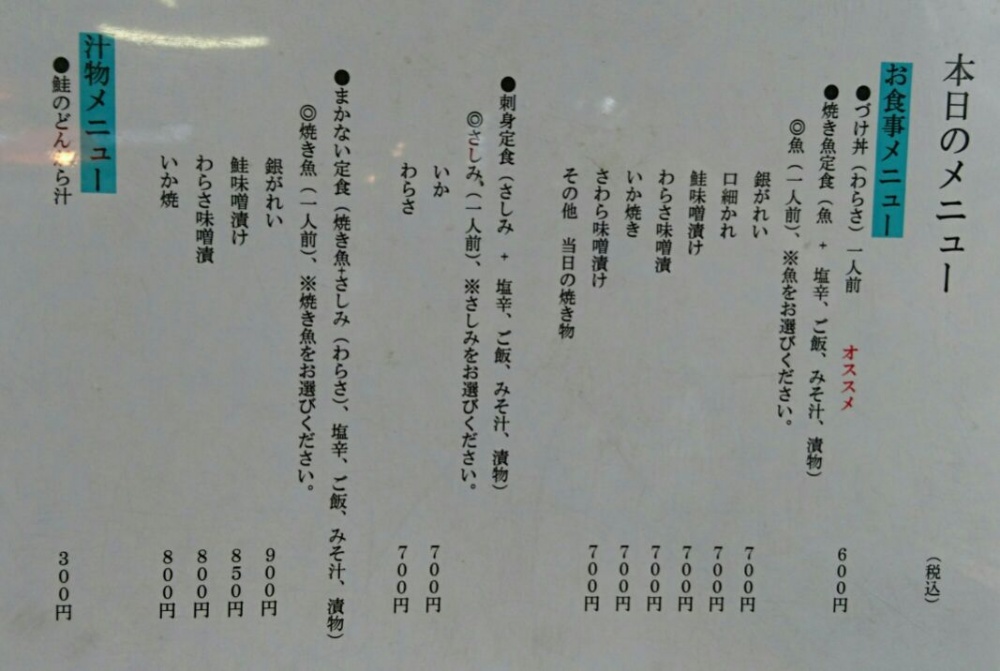 本日のメニュー
(税込)
お食事メニュー
●づけ丼(わらさ)一人前 オススメ 600円
●焼き魚定食(魚 + 塩辛、ご飯、みそ汁、漬物)
◎魚(一人前)、※魚をお選びください。
銀がれい 700円
口細かれ 700円
鮭味噌漬け 700円
わらさ味噌漬 700円
いか焼き 700円
さわら味噌漬け 700円
その他 当日の焼き物
●刺身定食(さしみ + 塩辛、ご飯、みそ汁、漬物)
◎さしみ、(一人前)、※さしみをお選びください。
いか 700円
わらさ 700円
●まかない定食(焼き魚+さしみ(わらさ)、塩辛、ご飯、みそ汁、漬物)
◎焼き魚(一人前)、※焼き魚をお選びください。
銀がれい 900円
鮭味噌漬け 850円
わらさ味噌漬 800円
いか焼 800円
汁物メニュー
●鮭のどん がら汁 300円